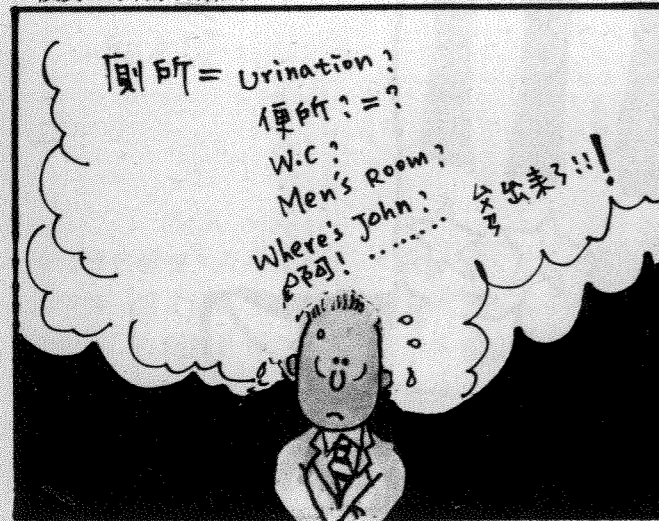 廁所 = urination?
便所?=?
W.C?
Men's Room?
Where's John?
啊! ........ 出来了!!!